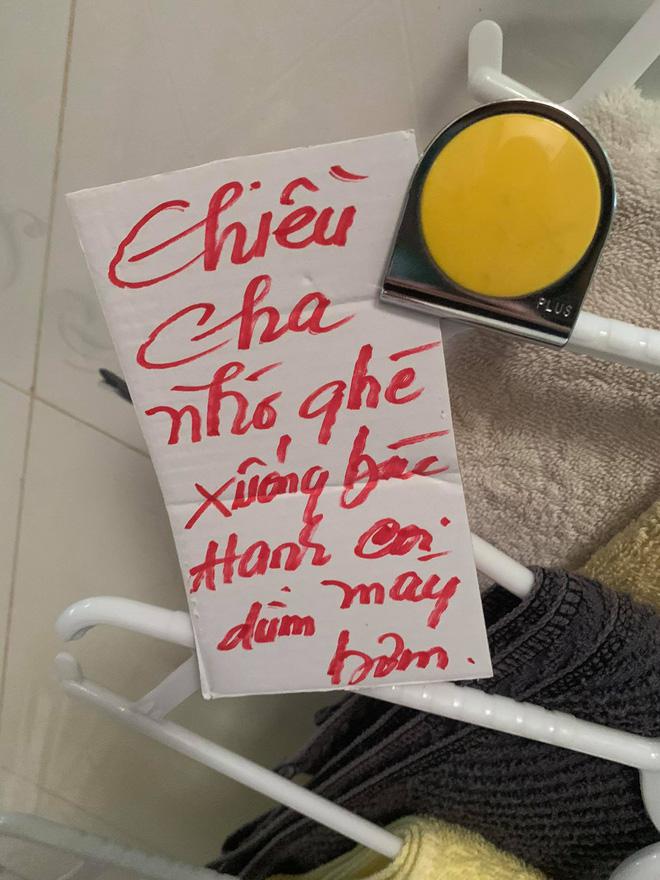 Chiều
Cha
nhớ ghé
xuống bác
Hanh coi
dùm máy
bơm.
PLUS